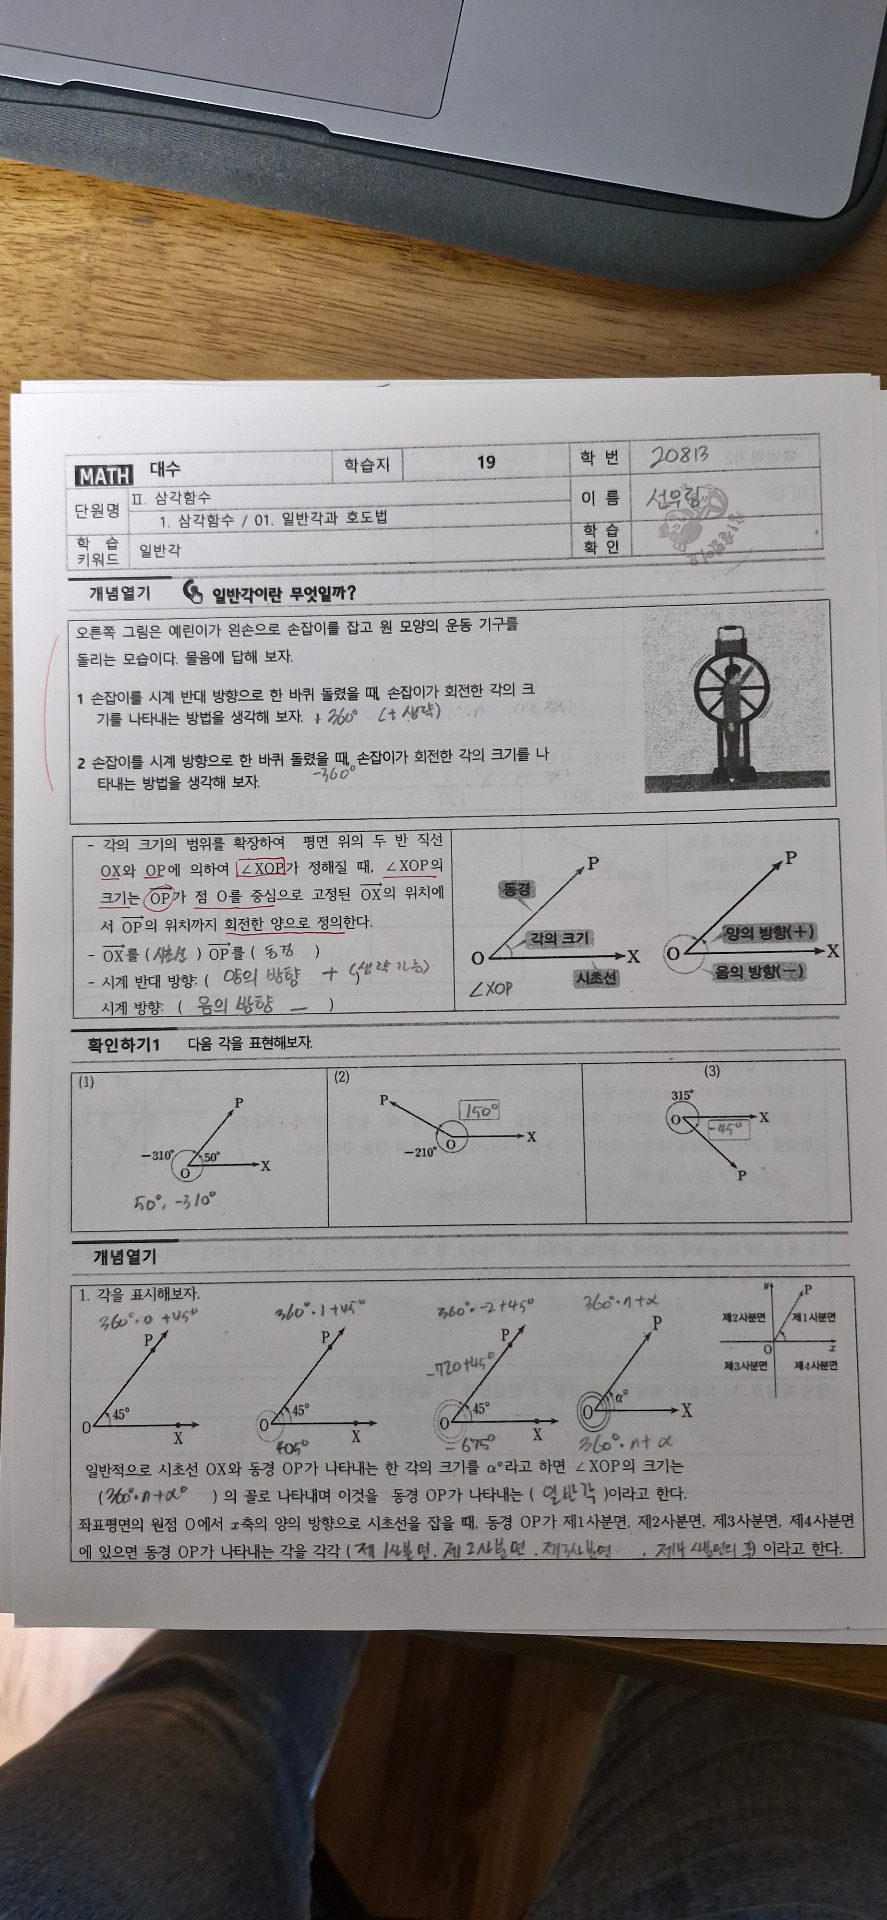 MATH 대수 학습지 19 학 번 20813
단원명 Ⅱ. 삼각함수 이 름 선우량
1. 삼각함수 / 01. 일반각과 호도법
학 습 키워드 일반각 학 습 확 인
개념열기 일반각이란 무엇일까?
오른쪽 그림은 예린이가 왼손으로 손잡이를 잡고 원 모양의 운동 기구를
돌리는 모습이다. 물음에 답해 보자.
1 손잡이를 시계 반대 방향으로 한 바퀴 돌렸을 때, 손잡이가 회전한 각의 크
기를 나타내는 방법을 생각해 보자. +360° (+ 생략)
2 손잡이를 시계 방향으로 한 바퀴 돌렸을 때, 손잡이가 회전한 각의 크기를 나
타내는 방법을 생각해 보자. -360°
- 각의 크기의 범위를 확장하여 평면 위의 두 반 직선
OX와 OP에 의하여 ∠XOP가 정해질 때, ∠XOP의
크기는 OP가 점 O를 중심으로 고정된 OX의 위치에
서 OP의 위치까지 회전한 양으로 정의한다.
- OX를 (시초선) OP를 (동경)
- 시계 반대 방향: (양의 방향 + (생략 가능)
시계 방향: (음의 방향 -)
P
동경
각의 크기
O X
시초선
∠XOP
P
양의 방향(+)
O X
음의 방향(-)
확인하기1 다음 각을 표현해보자.
(1)
P
-310° 50°
O X
50°, -310°
(2)
P 150°
-210° O X
(3)
315°
O X
-45°
P
개념열기
1. 각을 표시해보자.
360°·0+45°
P
45°
O X
360°·1+45°
P
45°
O X
405°
360°·-2+45°
P
-720+45°
45°
O X
-675°
360°·n+α
P
α°
O X
360°·n+α
y P
제2사분면 제1사분면
O x
제3사분면 제4사분면
일반적으로 시초선 OX와 동경 OP가 나타내는 한 각의 크기를 α°라고 하면 ∠XOP의 크기는
(360°·n+α°) 의 꼴로 나타내며 이것을 동경 OP가 나타내는 (일반각)이라고 한다.
좌표평면의 원점 O에서 x축의 양의 방향으로 시초선을 잡을 때, 동경 OP가 제1사분면, 제2사분면, 제3사분면, 제4사분면
에 있으면 동경 OP가 나타내는 각을 각각 (제1사분면, 제2사분면, 제3사분면, 제4사분면의 각) 이라고 한다.